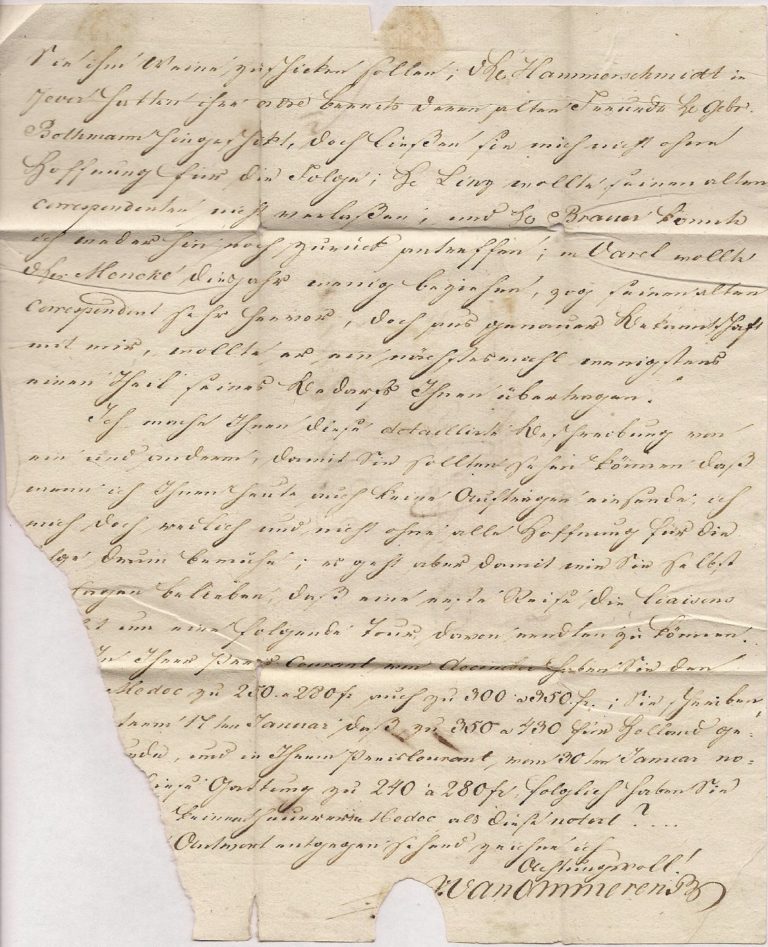 Sie ihm Weine zuschicken sollen; Hammerschmidt in
Jever hatten ihre ordre bereits deren alten Freunde He Gebr.
Bothmann hingeschikt, doch ließen sie mich nicht ohne
Hoffnung für die Folge; He Linz wollte seinen alten
correspondenten nicht verlaßen; und He Brauer konnte
ich weder hin noch zurück antreffen; in Varel wollte
Mencke dies Jahr wenig beziehen, zog seinen alten
Correspondent sehr hervor, doch aus genauer Bekantschaft
mit mir, wollte er ein nächstesmahl wenigstens
einen Theil seines Bedarfs Ihnen übertragen.
Ich mache Ihnen diese detaillirte Beschreibung von
ein und anderm, damit Sie sollten sehen können daß
wenn ich Ihnen heute auch keine Aufträgen einsende, ich
mich doch redlich und nicht ohne alle Hoffnung für die
lge darum bemühe; es geht aber damit wie Sie selbst
sagen belieben, daß eine erste Reise die Liaisons
um eine folgende Tour, davon erndten zu können.
In Ihrem Preis Courant vom December haben Sie den
Medoc zu 250 a 280 fr auch zu 300 a 350 fr.; Sie schreiben
17ten Januar daß zu 350 a 430 für Holland ge-
und in Ihrem Preiscourant, vom 30ten Januar no-
diese Gattung zu 240 à 280 fr, folglich haben Sie
keinen theureren Medoc als diese notirt? ...
Antwort entgegen sehend, zeichne ich
Achtungsvoll!
WvanOmmeren